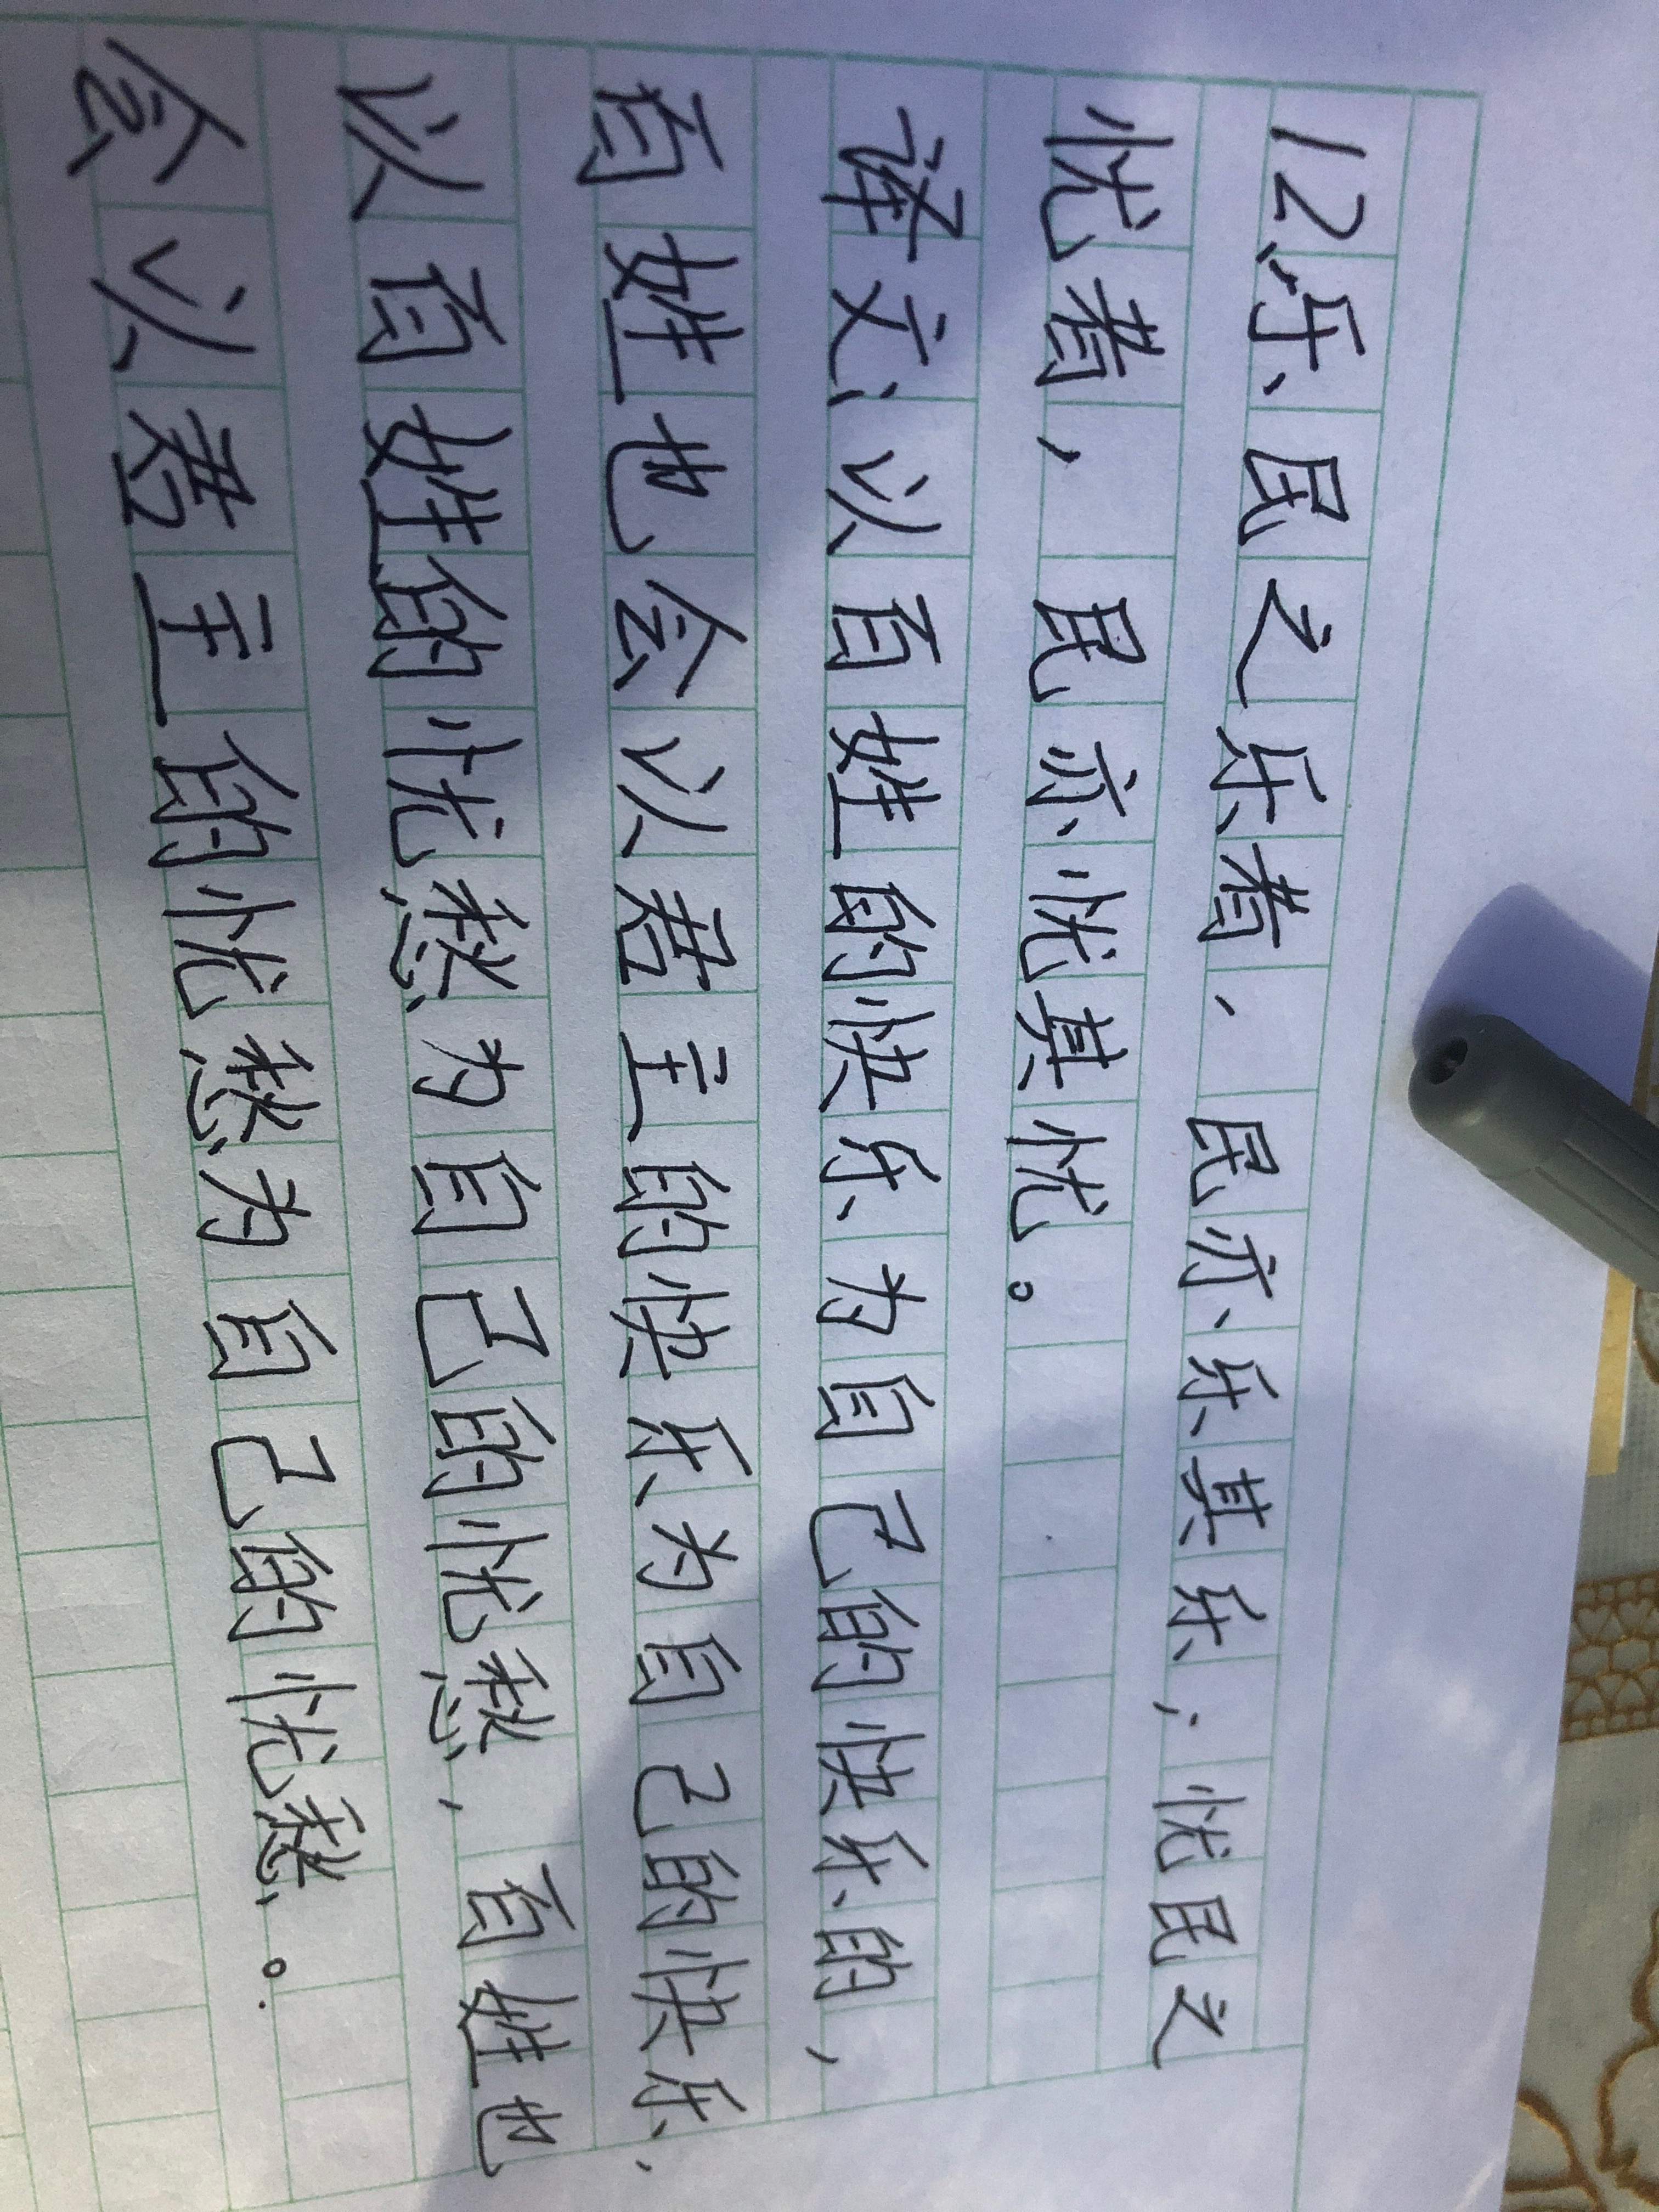 12、乐民之乐者，民亦乐其乐；忧民之
忧者，民亦忧其忧。
译文：以百姓的快乐为自己的快乐的，
百姓也会以君主的快乐为自己的快乐，
以百姓的忧愁为自己的忧愁，百姓也
会以君主的忧愁为自己的忧愁。